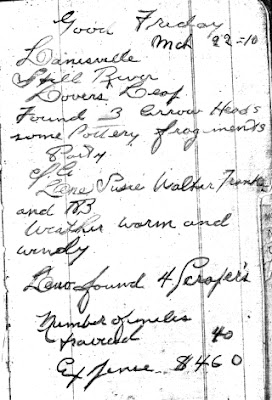 Good Friday
Mch 22-10
Lanisville
Still River
Lovers Leaf
Found 3 Arrow Heads
some Pottery fragments
Party
Lena Susie Walter Frank
and RB
Weather warm and
windy
Lena found 4 Scrapers
Number of miles
traveled 40
Expense $4.60